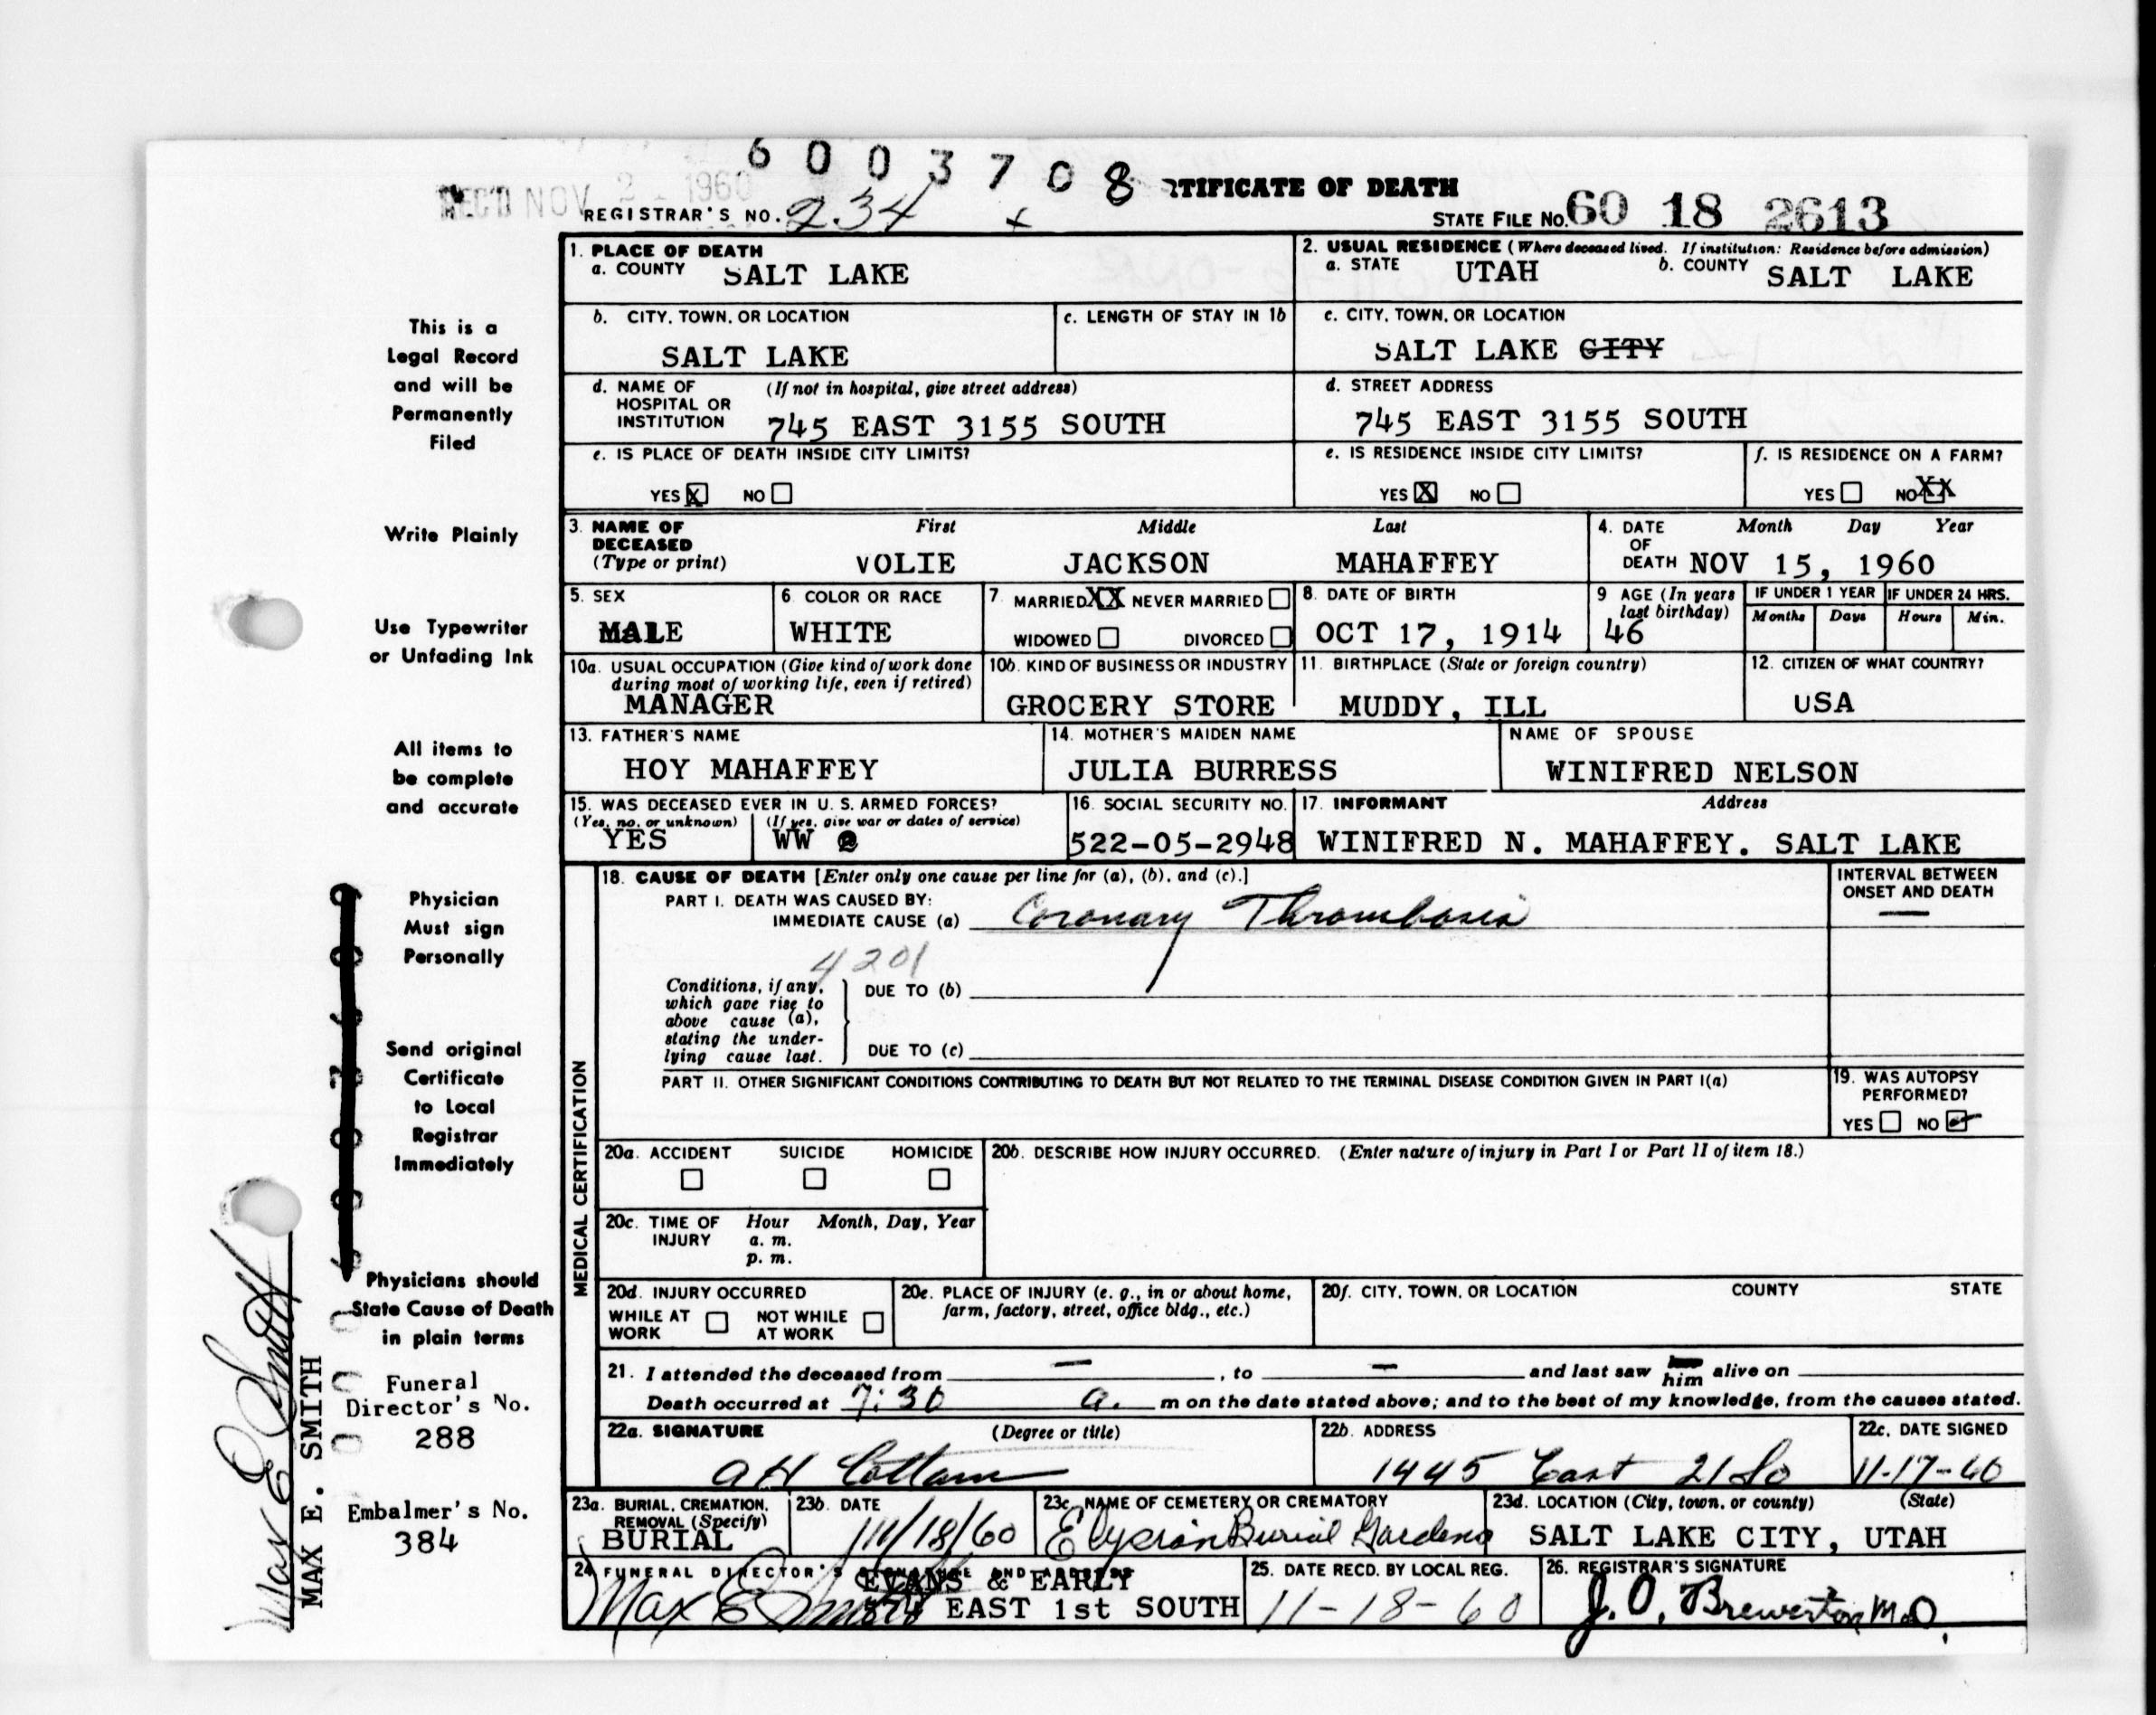 6003708
REC'D NOV 2 1960
RTIFICATE OF DEATH
REGISTRAR'S NO. 234
STATE FILE NO. 60 18 2613
1. PLACE OF DEATH
a. COUNTY SALT LAKE
2. USUAL RESIDENCE (Where deceased lived. If institution: Residence before admission)
a. STATE UTAH b. COUNTY SALT LAKE
b. CITY, TOWN, OR LOCATION
SALT LAKE
c. LENGTH OF STAY IN 1b
c. CITY, TOWN, OR LOCATION
SALT LAKE CITY
d. NAME OF HOSPITAL OR INSTITUTION (If not in hospital, give street address)
745 EAST 3155 SOUTH
d. STREET ADDRESS
745 EAST 3155 SOUTH
e. IS PLACE OF DEATH INSIDE CITY LIMITS?
YES X NO
e. IS RESIDENCE INSIDE CITY LIMITS?
YES X NO
f. IS RESIDENCE ON A FARM?
YES NO XX
3. NAME OF DECEASED (Type or print)
First Middle Last
VOLIE JACKSON MAHAFFEY
4. DATE OF DEATH Month Day Year
NOV 15, 1960
5. SEX
MALE
6. COLOR OR RACE
WHITE
7. MARRIED XX NEVER MARRIED
WIDOWED DIVORCED
8. DATE OF BIRTH
OCT 17, 1914
9 AGE (In years last birthday)
46
IF UNDER 1 YEAR IF UNDER 24 HRS.
Months Days Hours Min.
10a. USUAL OCCUPATION (Give kind of work done during most of working life, even if retired)
MANAGER
10b. KIND OF BUSINESS OR INDUSTRY
GROCERY STORE
11. BIRTHPLACE (State or foreign country)
MUDDY, ILL
12. CITIZEN OF WHAT COUNTRY?
USA
13. FATHER'S NAME
HOY MAHAFFEY
14. MOTHER'S MAIDEN NAME
JULIA BURRESS
NAME OF SPOUSE
WINIFRED NELSON
15. WAS DECEASED EVER IN U. S. ARMED FORCES?
(Yes, no, or unknown) (If yes, give war or dates of service)
YES WW 2
16. SOCIAL SECURITY NO.
522-05-2948
17. INFORMANT Address
WINIFRED N. MAHAFFEY. SALT LAKE
MEDICAL CERTIFICATION
18. CAUSE OF DEATH [Enter only one cause per line for (a), (b), and (c).]
PART I. DEATH WAS CAUSED BY:
IMMEDIATE CAUSE (a) Coronary Thrombosis
INTERVAL BETWEEN ONSET AND DEATH
—
4201
Conditions, if any, which gave rise to above cause (a), stating the underlying cause last.
DUE TO (b)
DUE TO (c)
PART II. OTHER SIGNIFICANT CONDITIONS CONTRIBUTING TO DEATH BUT NOT RELATED TO THE TERMINAL DISEASE CONDITION GIVEN IN PART I(a)
19. WAS AUTOPSY PERFORMED?
YES NO
20a. ACCIDENT SUICIDE HOMICIDE
20b. DESCRIBE HOW INJURY OCCURRED. (Enter nature of injury in Part I or Part II of item 18.)
20c. TIME OF INJURY Hour Month, Day, Year
a. m.
p. m.
20d. INJURY OCCURRED
WHILE AT WORK NOT WHILE AT WORK
20e. PLACE OF INJURY (e. g., in or about home, farm, factory, street, office bldg., etc.)
20f. CITY, TOWN, OR LOCATION COUNTY STATE
21. I attended the deceased from — , to — and last saw him alive on
Death occurred at 7:30 a. m on the date stated above; and to the best of my knowledge, from the causes stated.
22a. SIGNATURE (Degree or title)
A H Cottam
22b. ADDRESS
1445 East 21 So
22c. DATE SIGNED
11-17-60
23a. BURIAL, CREMATION, REMOVAL (Specify)
BURIAL
23b. DATE
11/18/60
23c. NAME OF CEMETERY OR CREMATORY
Elysian Burial Gardens
23d. LOCATION (City, town, or county) (State)
SALT LAKE CITY, UTAH
24 FUNERAL DIRECTOR'S SIGNATURE AND ADDRESS
EVANS & EARLY
Max E Smith 574 EAST 1st SOUTH
25. DATE RECD. BY LOCAL REG.
11-18-60
26. REGISTRAR'S SIGNATURE
J. O. Brewerton M.D.
This is a
Legal Record
and will be
Permanently
Filed
Write Plainly
Use Typewriter
or Unfading Ink
All items to
be complete
and accurate
Physician
Must sign
Personally
Send original
Certificate
to Local
Registrar
Immediately
Physicians should
State Cause of Death
in plain terms
Funeral
Director's No.
288
Embalmer's No.
384
Max E Smith
MAX E. SMITH